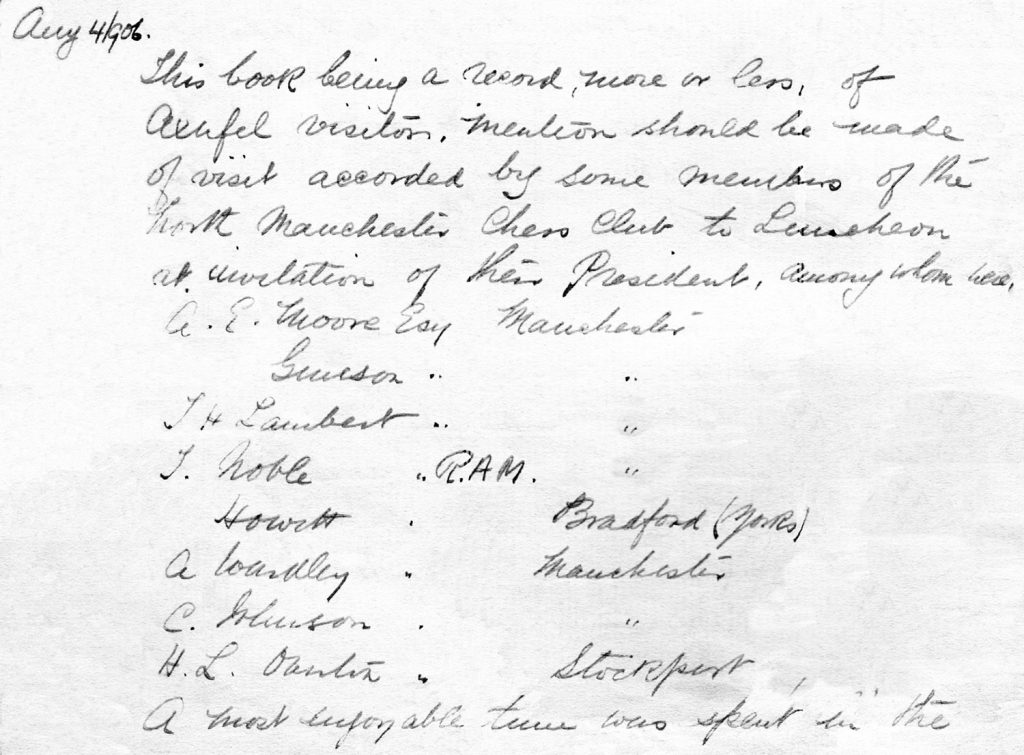 Aug 4/906.
This book being a record, more or less, of
Axnfel visitors, mention should be made
of visit accorded by some members of the
North Manchester Chess Club to Luncheon
at invitation of their President, among whom were,
A. E. Moore Esq Manchester
" "
T H Lambert " "
T. Noble " R.A.M. "
Howitt " Bradford (Yorks)
A Wardley " Manchester
C. Johnson " "
H. L. " Stockport
A most enjoyable time was spent in the